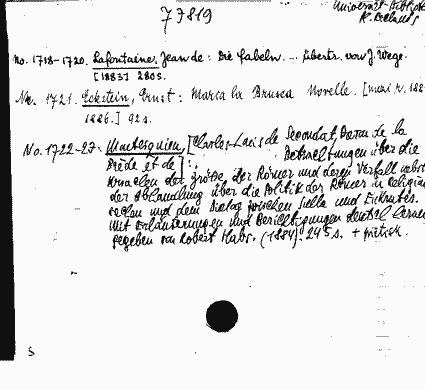 77819
No. 1718-1720. Lafontaine, Jean de: Die Fabeln. ... übertr. von J. Wege.
[1883] 280 S.
No. 1721. Eckstein, Ernst: Marca la Brusca Novelle.
1886.] 92 S.
No. 1722-27: Montesquieu, [Charles-Louis de Secondat, Baron de la
Brède et de]: Betrachtungen über die
Ursachen der Größe der Römer und deren Verfall nebst
der Abhandlung über die Politik der Römer in
und dem Dialog zwischen Sulla und Eukrates.
Mit Erläuterungen und Berichtigungen deutsch
gegeben von Robert Habs. (1884). 245 S. +
S